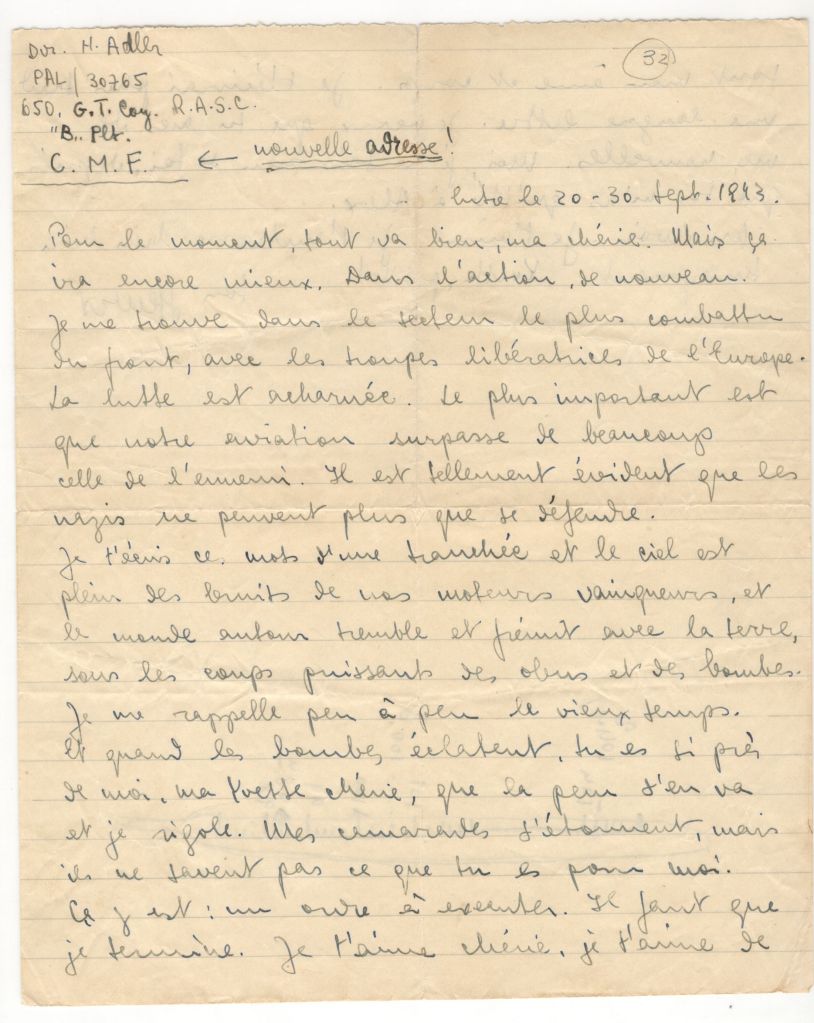 32
Dvr. H. Adler
PAL/30765
650. G.T. Coy. R.A.S.C.
"B" Plt.
C.M.F. ← nouvelle adresse!
Entre le 20-30 Sept. 1943.
Pour le moment, tout va bien, ma chérie. Mais ça
ira encore mieux. Dans l'action, de nouveau.
Je me trouve dans le secteur le plus combattu
du front, avec les troupes libératrices de l'Europe.
La lutte est acharnée. Le plus important est
que notre aviation surpasse de beaucoup
celle de l'ennemi. Il est tellement évident que les
nazis ne peuvent plus que se défendre.
Je t'écris ce mots d'une tranchée et le ciel est
plein des bruits de nos moteurs vainqueurs, et
le monde autour tremble et frémit avec la terre,
sous les coups puissants des obus et des bombes.
Je me rappelle peu à peu le vieux temps.
Et quand les bombes éclatent, tu es si près
de moi, ma Yvette chérie, que la peur s'en va
et je rigole. Mes camarades s'étonnent, mais
ils ne savent pas ce que tu es pour moi.
Ça y est: un ordre à executer. Il faut que
je termine. Je t'aime chérie, je t'aime de